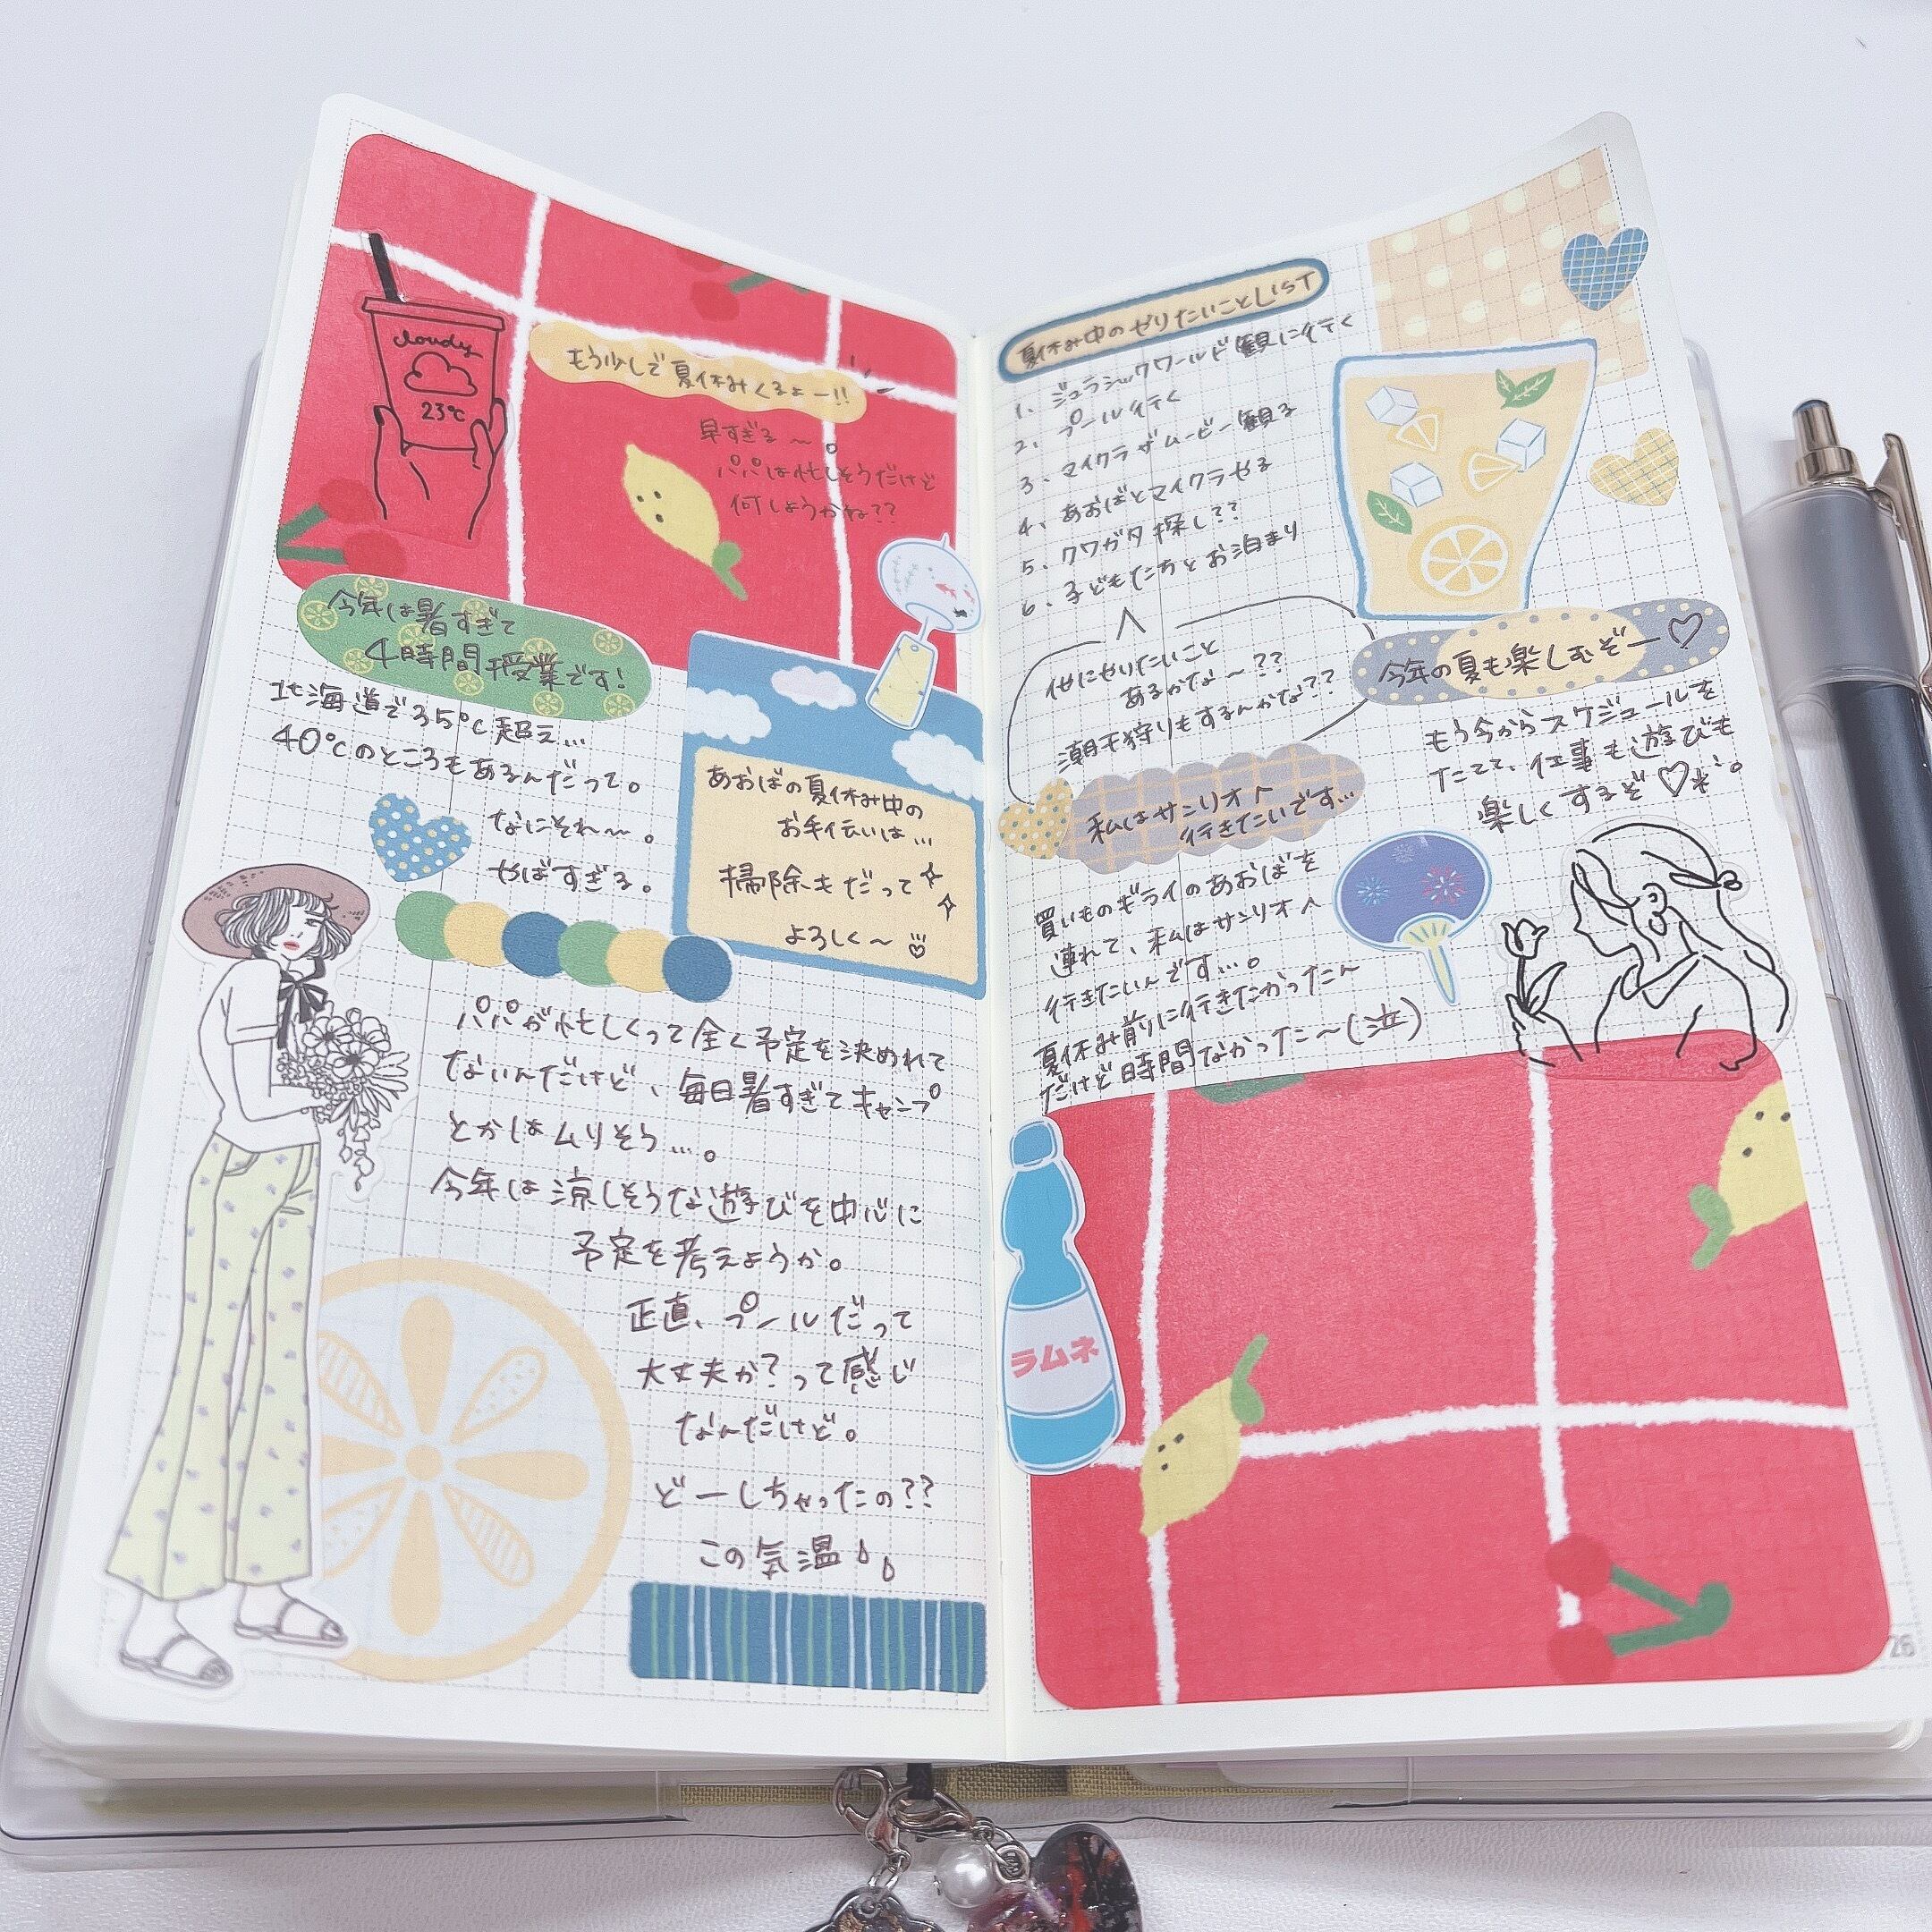 cloudy
23℃
もう少しで夏休みくるよー!!
早すぎる〜。
パパは忙しそうだけど
何しようかね??
今年は暑すぎて
4時間授業です!
北海道で35℃超え…
40℃のところもあるんだって。
なにそれ〜。
やばすぎる。
あおばの夏休み中の
お手伝いは…
掃除もだって
よろしく〜
パパが忙しくって全く予定を決めれて
ないんだけど、毎日暑すぎてキャンプ
とかはムリそう…。
今年は涼しそうな遊びを中心に
予定を考えようか。
正直、プールだって
大丈夫か?って感じ
なんだけど。
どーしちゃったの??
この気温
夏休み中のやりたいことLIST
1、ジュラシックワールド観に行く
2、プール行く
3、マイクラ ザ ムービー観る
4、あおばとマイクラやる
5、クワガタ探し??
6、子どもたちとお泊まり
他にやりたいこと
あるかな〜??
潮干狩りもするんかな??
今年の夏も楽しむぞー♡
もう今からスケジュールを
たてて、仕事も遊びも
楽しくするぞ♡
私はサンリオへ
行きたいです…
買いものギライのあおばを
連れて、私はサンリオへ
行きたいんです…。
夏休み前に行きたかったん
だけど時間なかったた〜(泣)
ラムネ
26